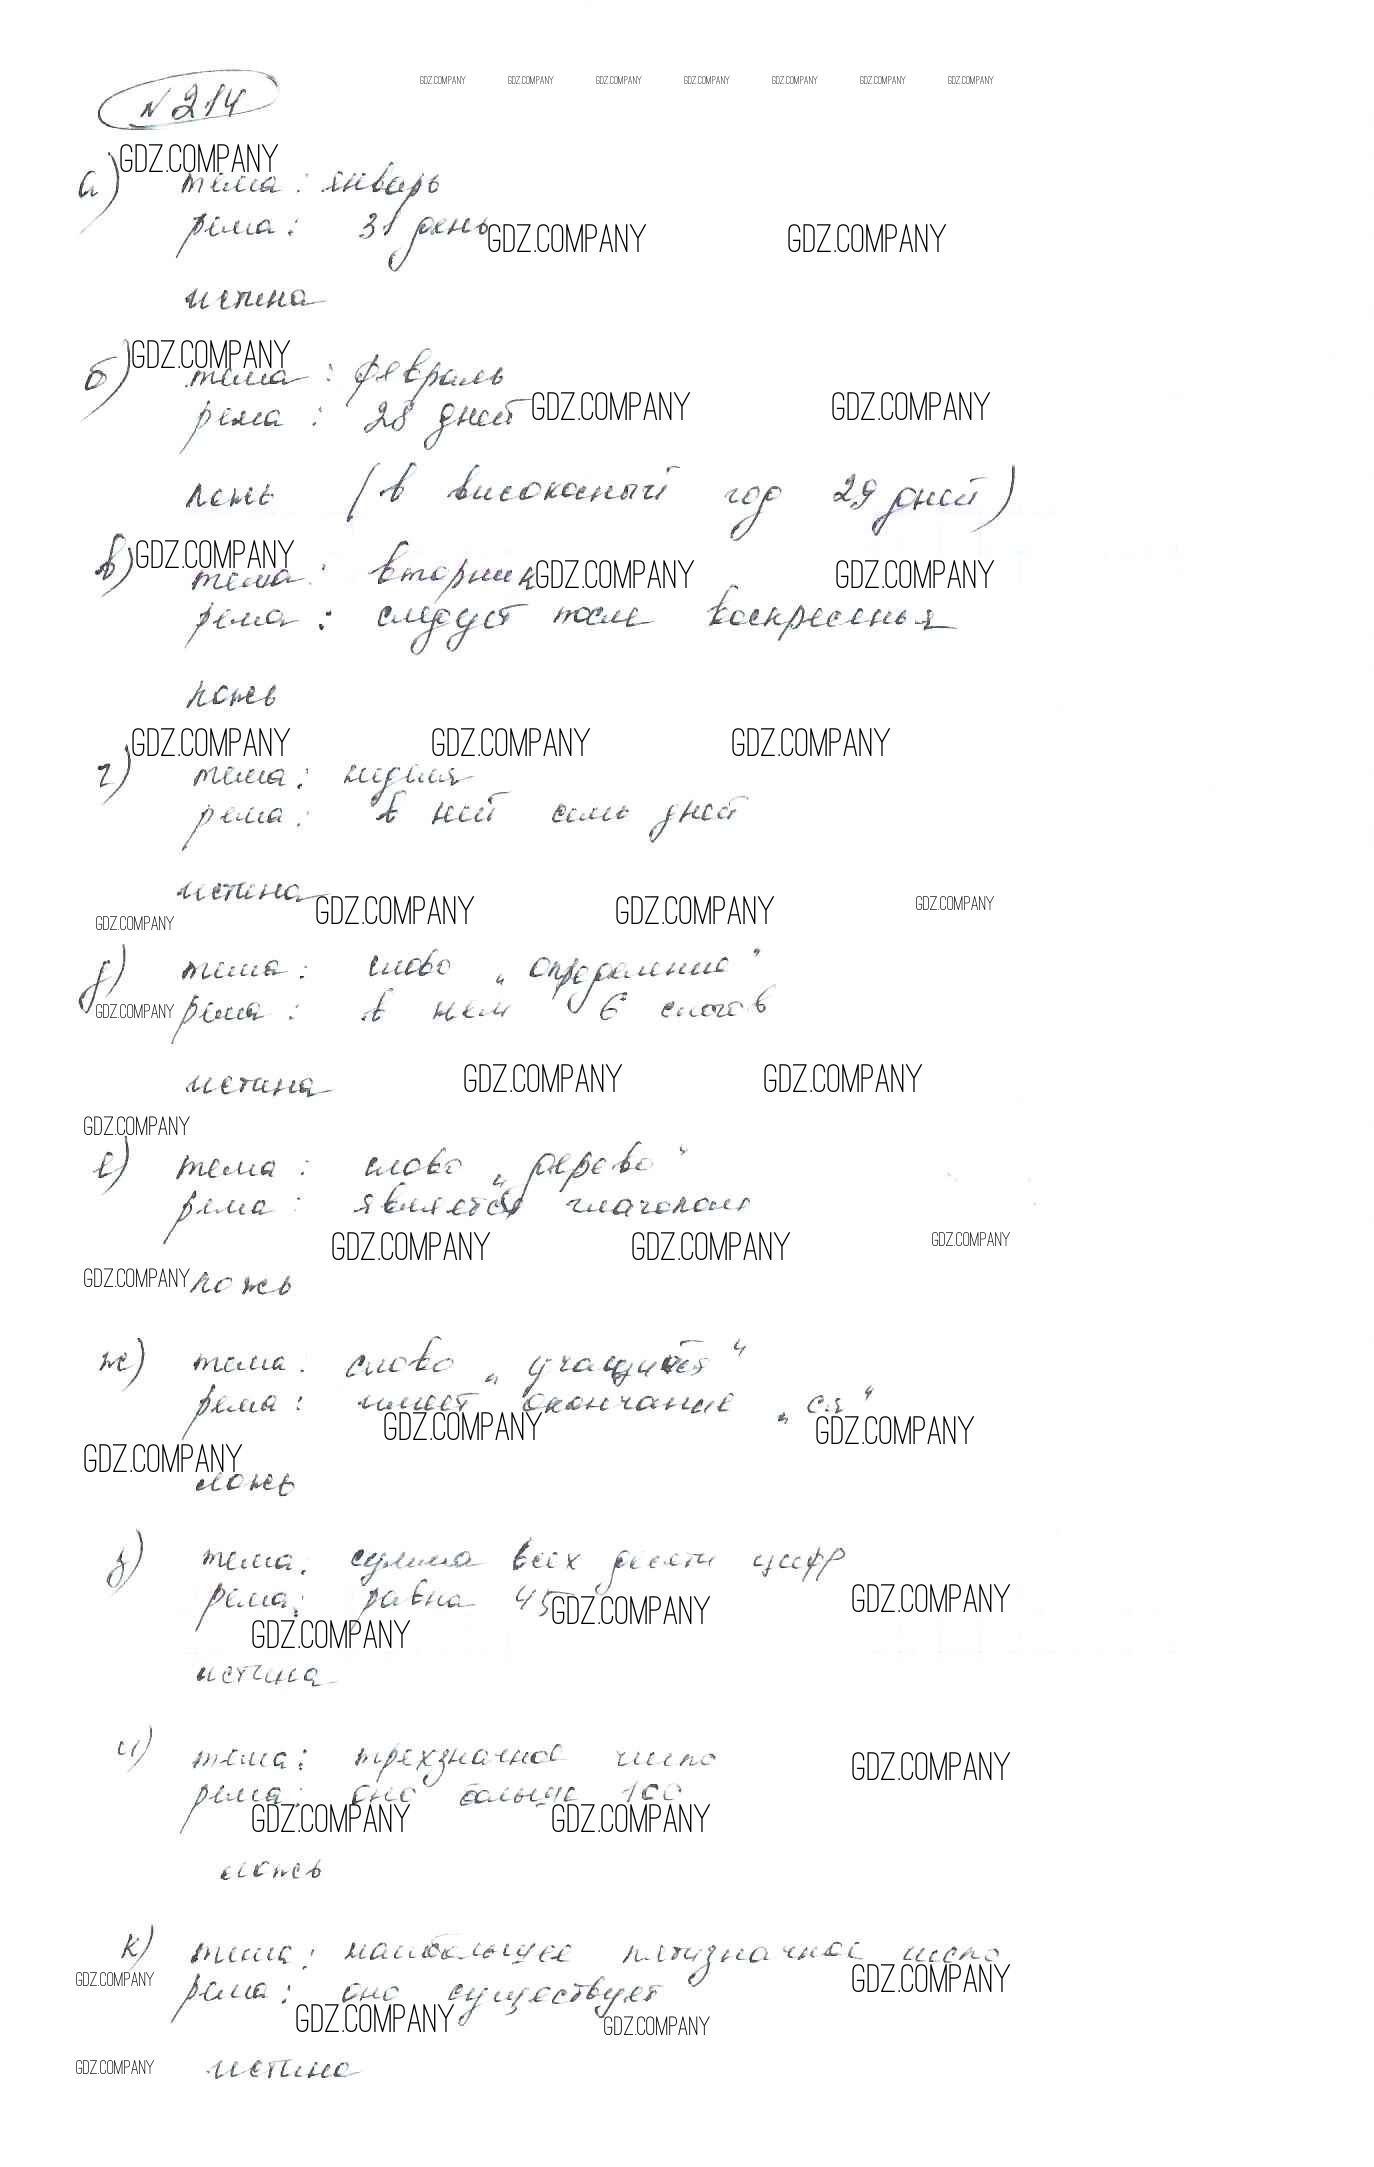 GDZ.COMPANY GDZ.COMPANY GDZ.COMPANY GDZ.COMPANY GDZ.COMPANY GDZ.COMPANY GDZ.COMPANY
N 214
GDZ.COMPANY
а) тема: январь
рема: 31 день
GDZ.COMPANY GDZ.COMPANY
истина
GDZ.COMPANY
б) тема: февраль
рема: 28 дней
GDZ.COMPANY GDZ.COMPANY
ложь (в високосный год 29 дней)
GDZ.COMPANY
в) тема: вторник
GDZ.COMPANY GDZ.COMPANY
рема: следует после воскресенья
ложь
GDZ.COMPANY GDZ.COMPANY GDZ.COMPANY
г) тема: неделя
рема: в ней семь дней
истина
GDZ.COMPANY GDZ.COMPANY GDZ.COMPANY
GDZ.COMPANY
д) тема: слово „определение"
GDZ.COMPANY
рема: в нем 6 слогов
истина
GDZ.COMPANY GDZ.COMPANY
GDZ.COMPANY
е) тема: слово „дерево"
рема: является глаголом
GDZ.COMPANY GDZ.COMPANY GDZ.COMPANY
GDZ.COMPANY
ложь
ж) тема: слово „учащийся"
рема: имеет окончание „ся"
GDZ.COMPANY GDZ.COMPANY
GDZ.COMPANY
ложь
з) тема: сумма всех десяти цифр
рема: равна 45
GDZ.COMPANY GDZ.COMPANY
GDZ.COMPANY
истина
и) тема: трехзначное число
GDZ.COMPANY
рема: оно больше 100
GDZ.COMPANY GDZ.COMPANY
ложь
к) тема: наибольшее пятизначное число
GDZ.COMPANY GDZ.COMPANY
рема: оно существует
GDZ.COMPANY GDZ.COMPANY
GDZ.COMPANY
истина